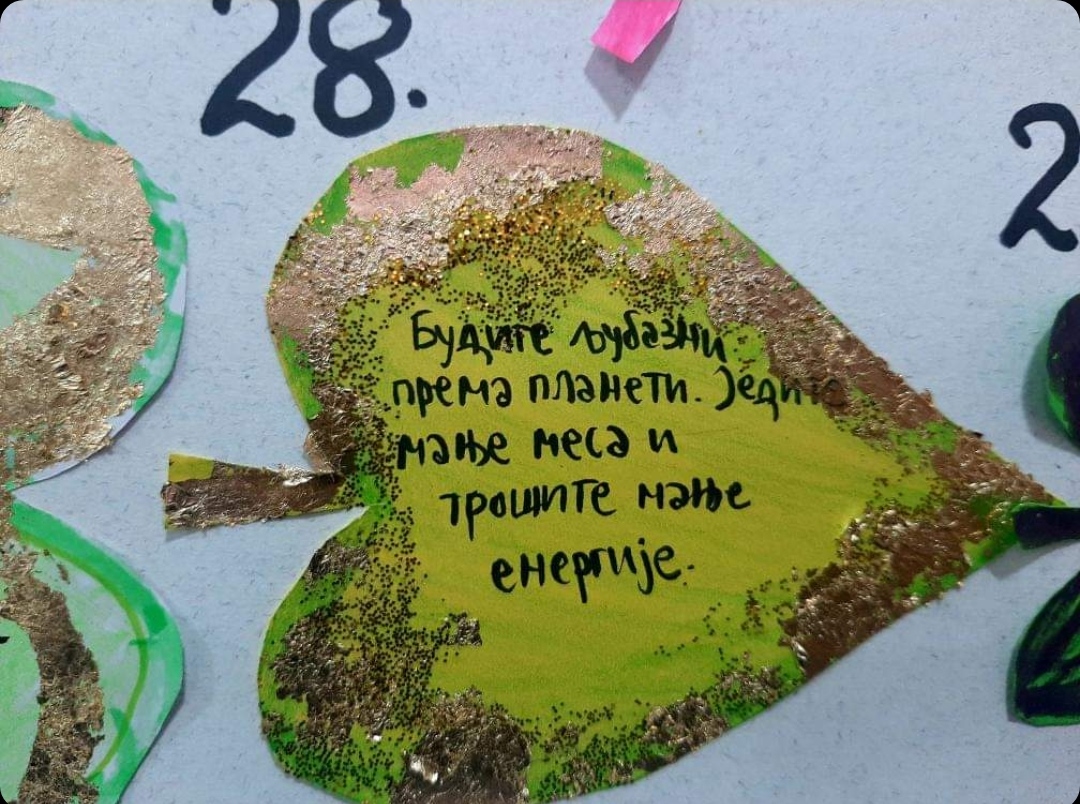 28.
2
Будите љубазни
према планети. Једите
мање меса и
трошите мање
енергије.